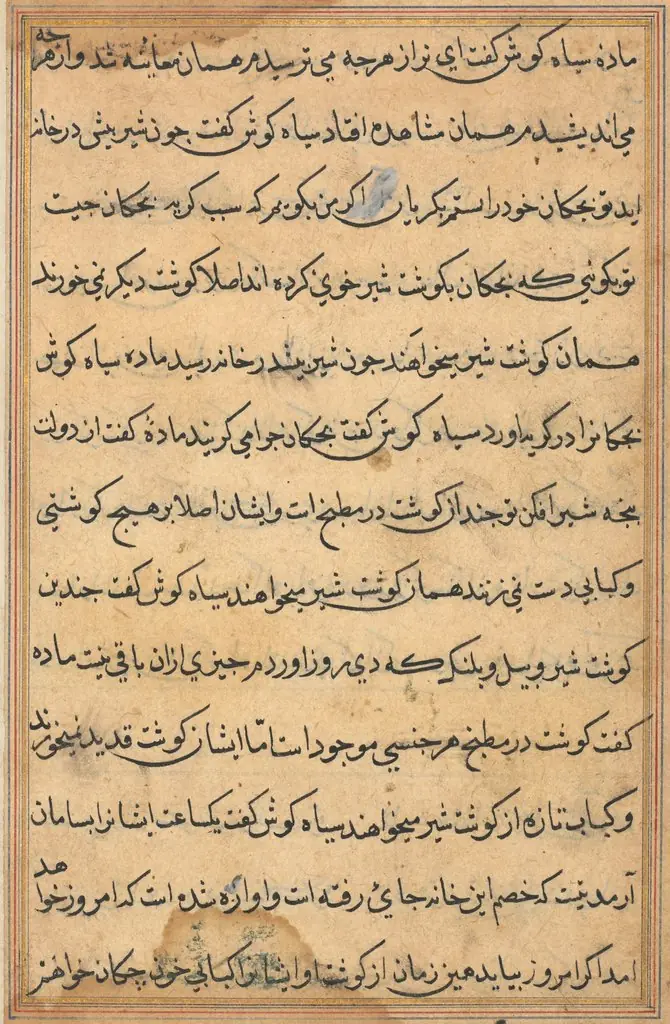 ماده سیاه کوش کفت ای نر از هر جه می ترسیدم همان معاینه شد و از هر جه
می اندیشیدم همان مشاهده افتاد سیاه کوش کفت جون شیر پیش در خانه
اید تو بجکان خود را ستم بکریان اکر من بکویم که سبب کریه بجکان جیست
تو بکوئی که بجکان بکوشت شیر خوی کرده اند اصلا کوشت دیکر نمی خورند
همان کوشت شیر میخواهند جون شیر پیش در خانه رسید ماده سیاه کوش
بجکانرا در کریه اورد سیاه کوش کفت بجکان جرا می کریند ماده کفت از دولت
پنجه شیر افکن تو جند از کوشت در مطبخ است و ایشان اصلا بر هیج کوشتی
و کبابی دست نمی زنند همان کوشت شیر میخواهند سیاه کوش کفت جندین
کوشت شیر و پیل و پلنک که دی روز اوردم جیزی ازان باقی نیست ماده
کفت کوشت در مطبخ هر جنسی موجود است امّا ایشان کوشت قدید نمیخورند
و کباب تازه از کوشت شیر میخواهند سیاه کوش کفت یکساعت ایشانرا بسامان
آر مدتیست که خصم این خانه جائ رفته است و اوازه شده است که امروز خواهد
امد اکر امروز بیاید همین زمان از کوشت او ایشانرا کبابی خون جکان خواهم